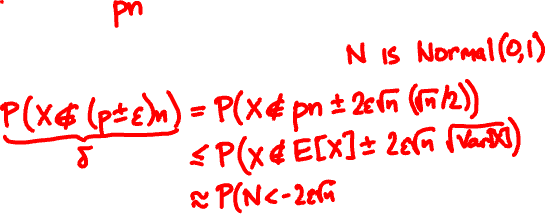 pn
N is Normal(0,1)
P(X∉(p±ε)n) = P(X∉ pn ± 2ε√n (√n/2))
δ
≤ P(X∉E[X] ± 2ε√n √Var[X])
≈ P(N<-2ε√n